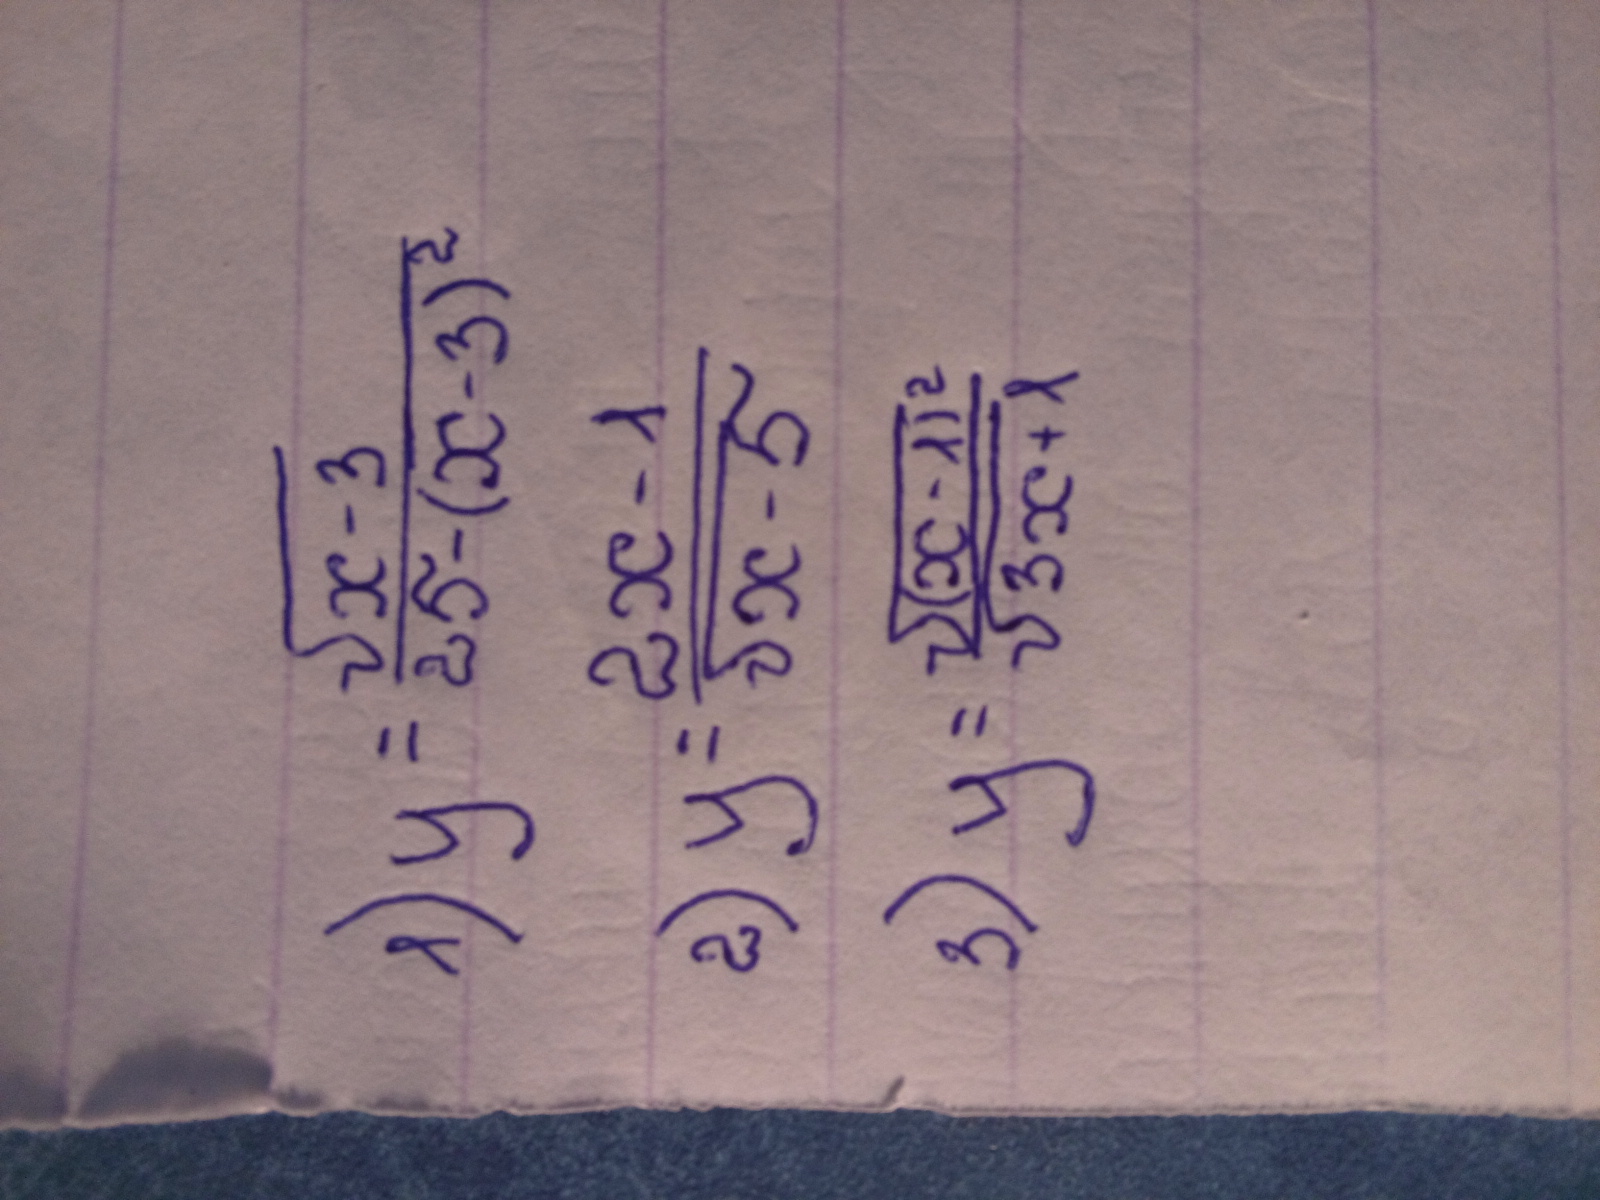 1) y = √(x-3) / 25-(x-3)²
2) y = 2x-1 / √(x-5)
3) y = √((x-1)²) / √(3x+1)